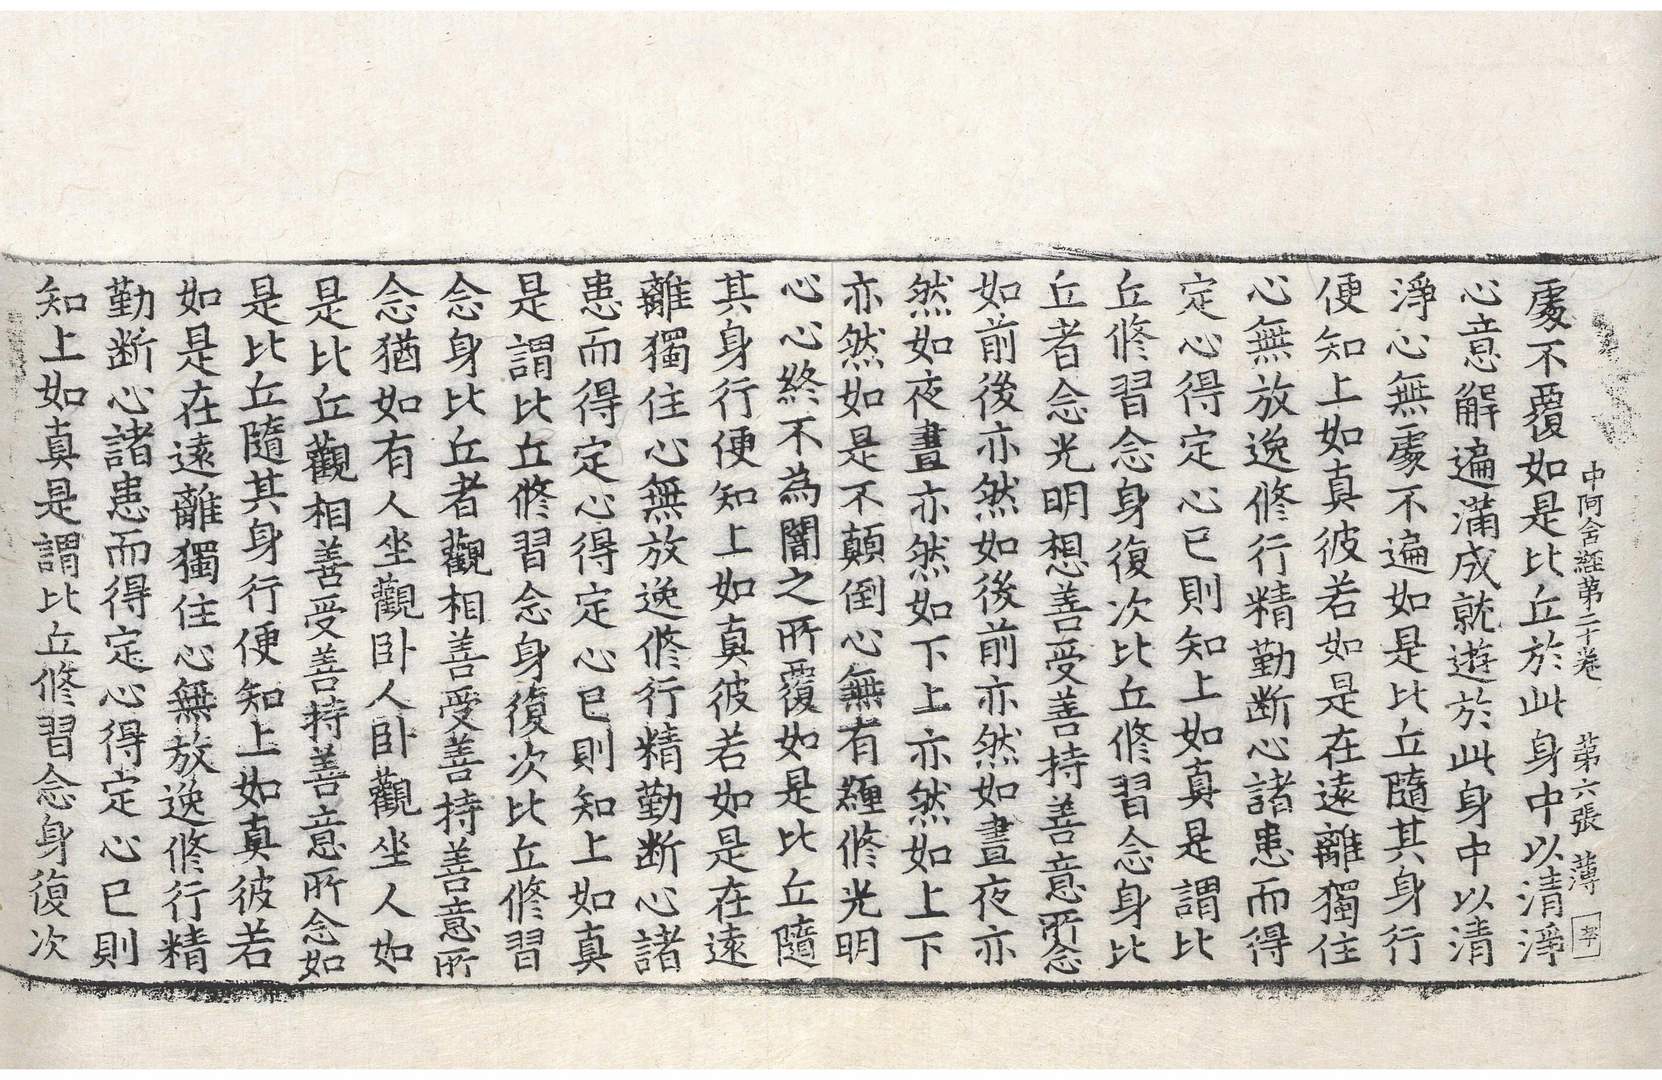 中阿含經第二十卷 第六張 薄
處不覆如是比丘於此身中以清淨
心意解遍滿成就遊於此身中以清
淨心無處不遍如是比丘隨其身行
便知上如真彼若如是在遠離獨住
心無放逸修行精勤断心諸患而得
定心得定心已則知上如真是謂比
丘修習念身復次比丘修習念身比
丘者念光明想善受善持善意所念
如前後亦然如後前亦然如晝夜亦
然如夜晝亦然如下上亦然如上下
亦然如是不顛倒心無有纏修光明
心心終不為闇之所覆如是比丘隨
其身行便知上如真彼若如是在遠
離獨住心無放逸修行精勤断心諸
患而得定心得定心已則知上如真
是謂比丘修習念身復次比丘修習
念身比丘者觀相善受善持善意所
念猶如有人坐觀卧人卧觀坐人如
是比丘觀相善受善持善意所念如
是比丘隨其身行便知上如真彼若
如是在遠離獨住心無放逸修行精
勤断心諸患而得定心得定心已則
知上如真是謂比丘修習念身復次